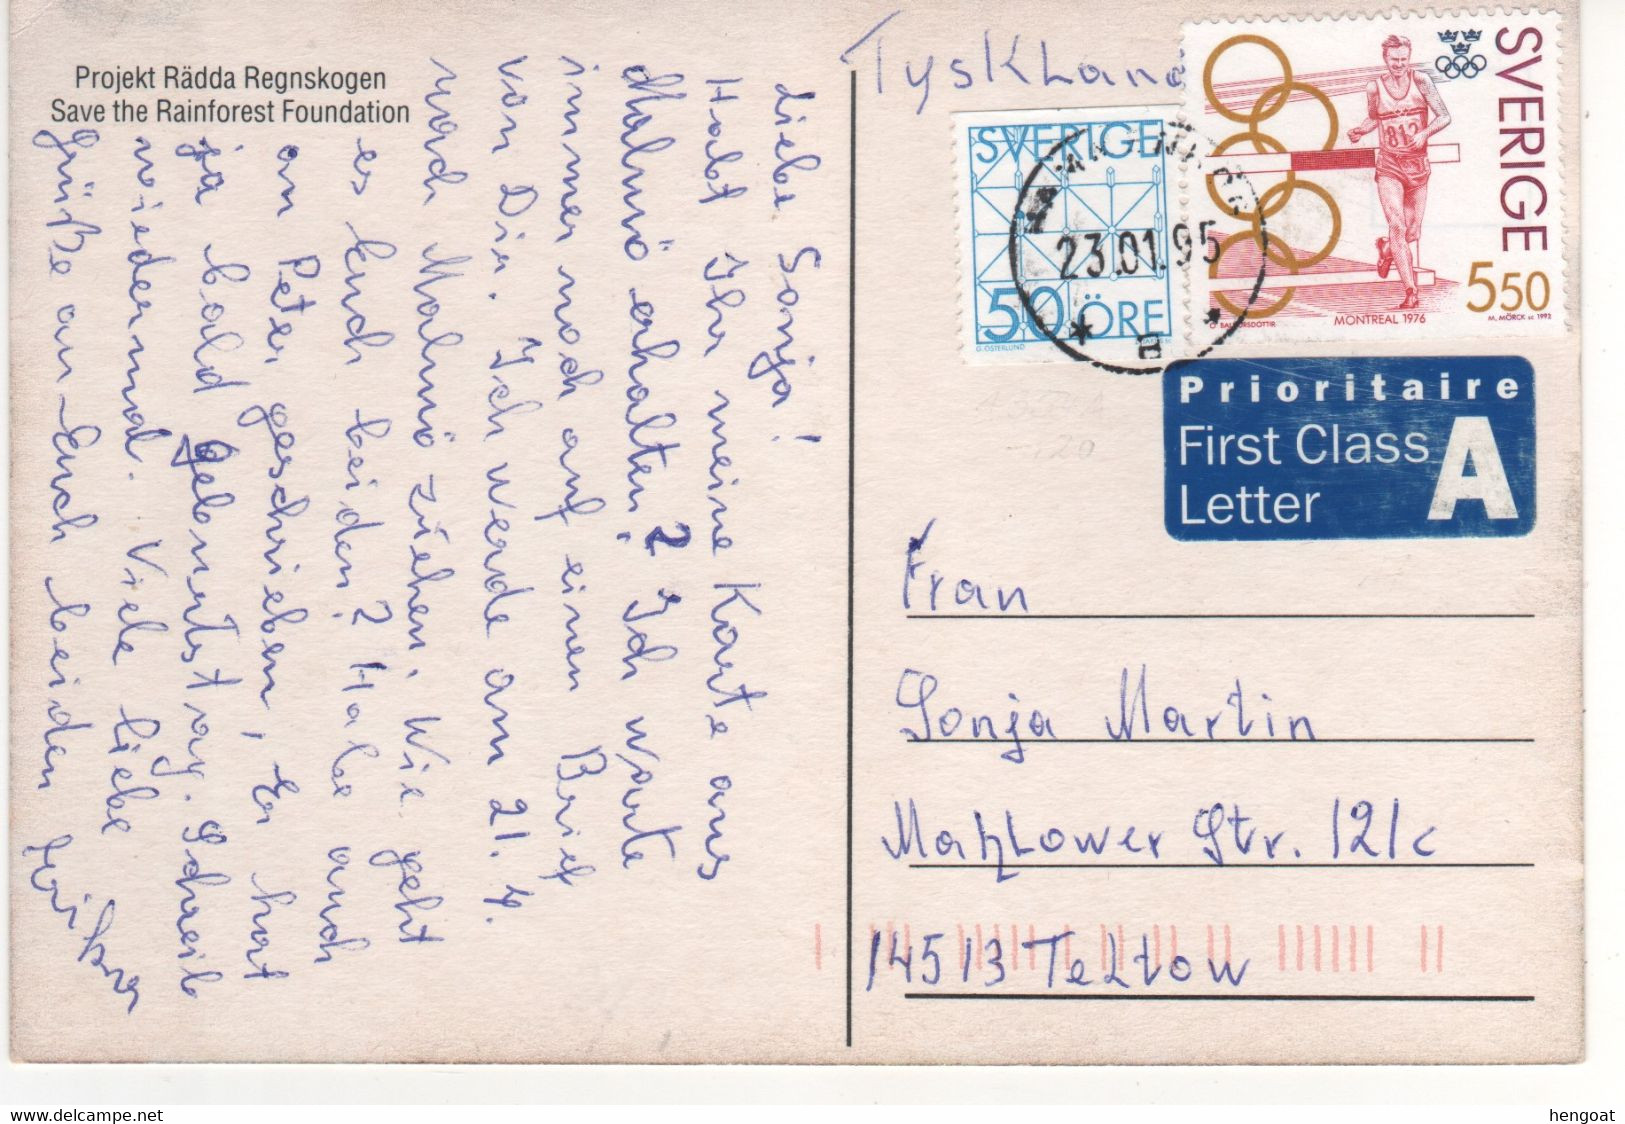 Projekt Rädda Regnskogen
Save the Rainforest Foundation
Liebe Sonja!
Habt Ihr meine Karte aus
Malmö erhalten? Ich warte
immer noch auf einen Brief
von Dir. Ich werde am 21.4.
nach Malmö ziehen. Wie geht
es Euch beiden? Habe auch
an Peter geschrieben, Er hat
ja bald Geburtstag. Schreib
wiedermal. Viele liebe
Grüße an Euch beiden
Tyskland
SVERIGE
50 ÖRE
G. ÖSTERLUND
23.01.95
B
SVERIGE
812
5 50
MONTREAL 1976
M. MÖRCK sc 1992
Prioritaire
First Class
Letter
A
Frau
Sonja Martin
Mahlower Str. 121c
14513 Teltow
www.delcampe.net
hengoat